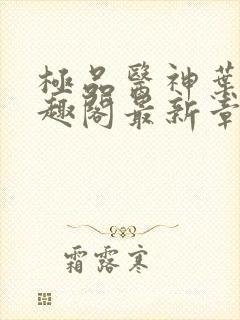 極品醫神葉
趣閣最新章
霜露寒